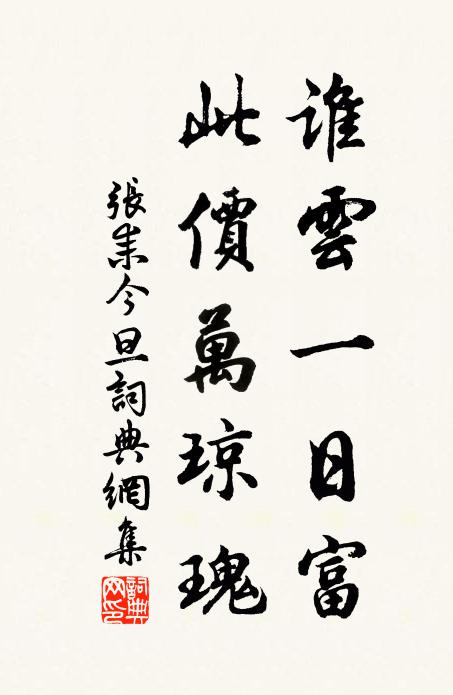 誰雲一日富
此價萬琼瑰
張耒今旦詞典網集
詞典网印